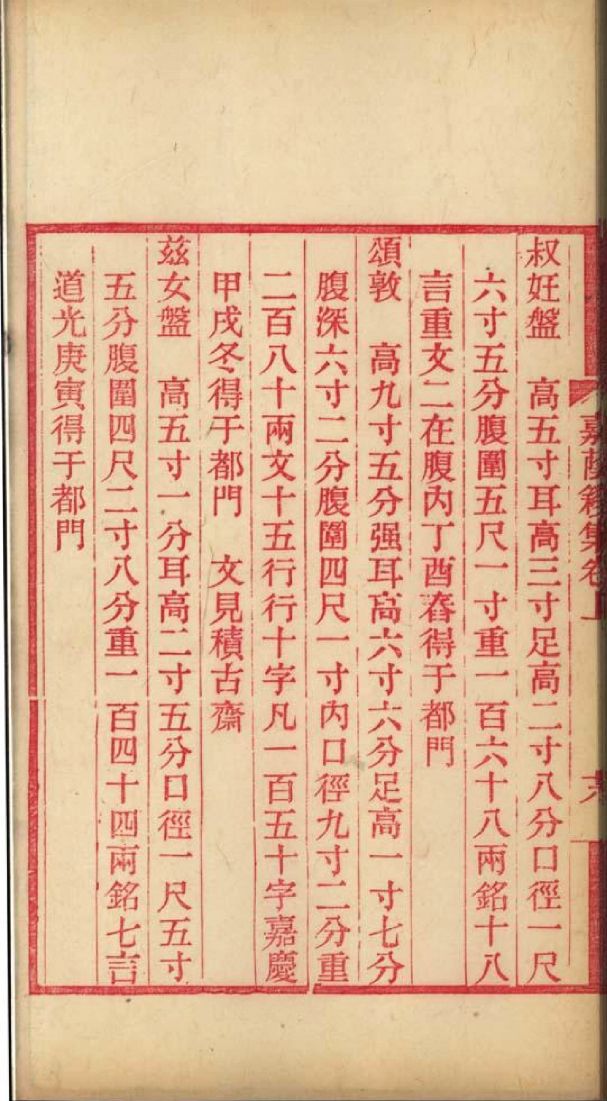 嘉蔭簃集卷上
六
叔妊盤　高五寸耳高三寸足高二寸八分口徑一尺
六寸五分腹圍五尺一寸重一百六十八兩銘十八
言重文二在腹內丁酉舂得于都門
頌敦　高九寸五分强耳高六寸六分足高一寸七分
腹深六寸二分腹圍四尺一寸內口徑九寸二分重
二百八十兩文十五行行十字凡一百五十字嘉慶
甲戌冬得于都門　文見積古齋
兹女盤　高五寸一分耳高二寸五分口徑一尺五寸
五分腹圍四尺二寸八分重一百四十四兩銘七言
道光庚寅得于都門